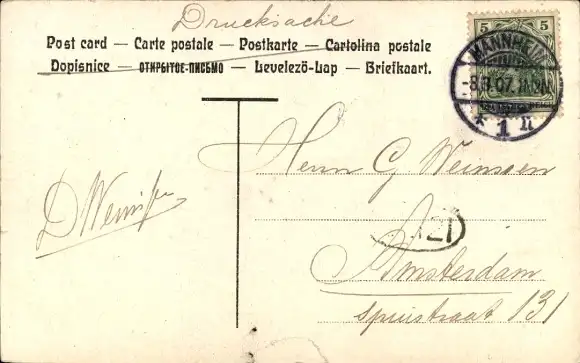 Drucksache
Post card — Carte postale — Postkarte — Cartolina postale
Dopisnice — ОТКРЫТОЕ-ПИСЬМО — Levelező-Lap — Briefkaart.
5 5
MANNHEIM
07
* 1 n
Herrn G
121
Amsterdam
spuistraat 131